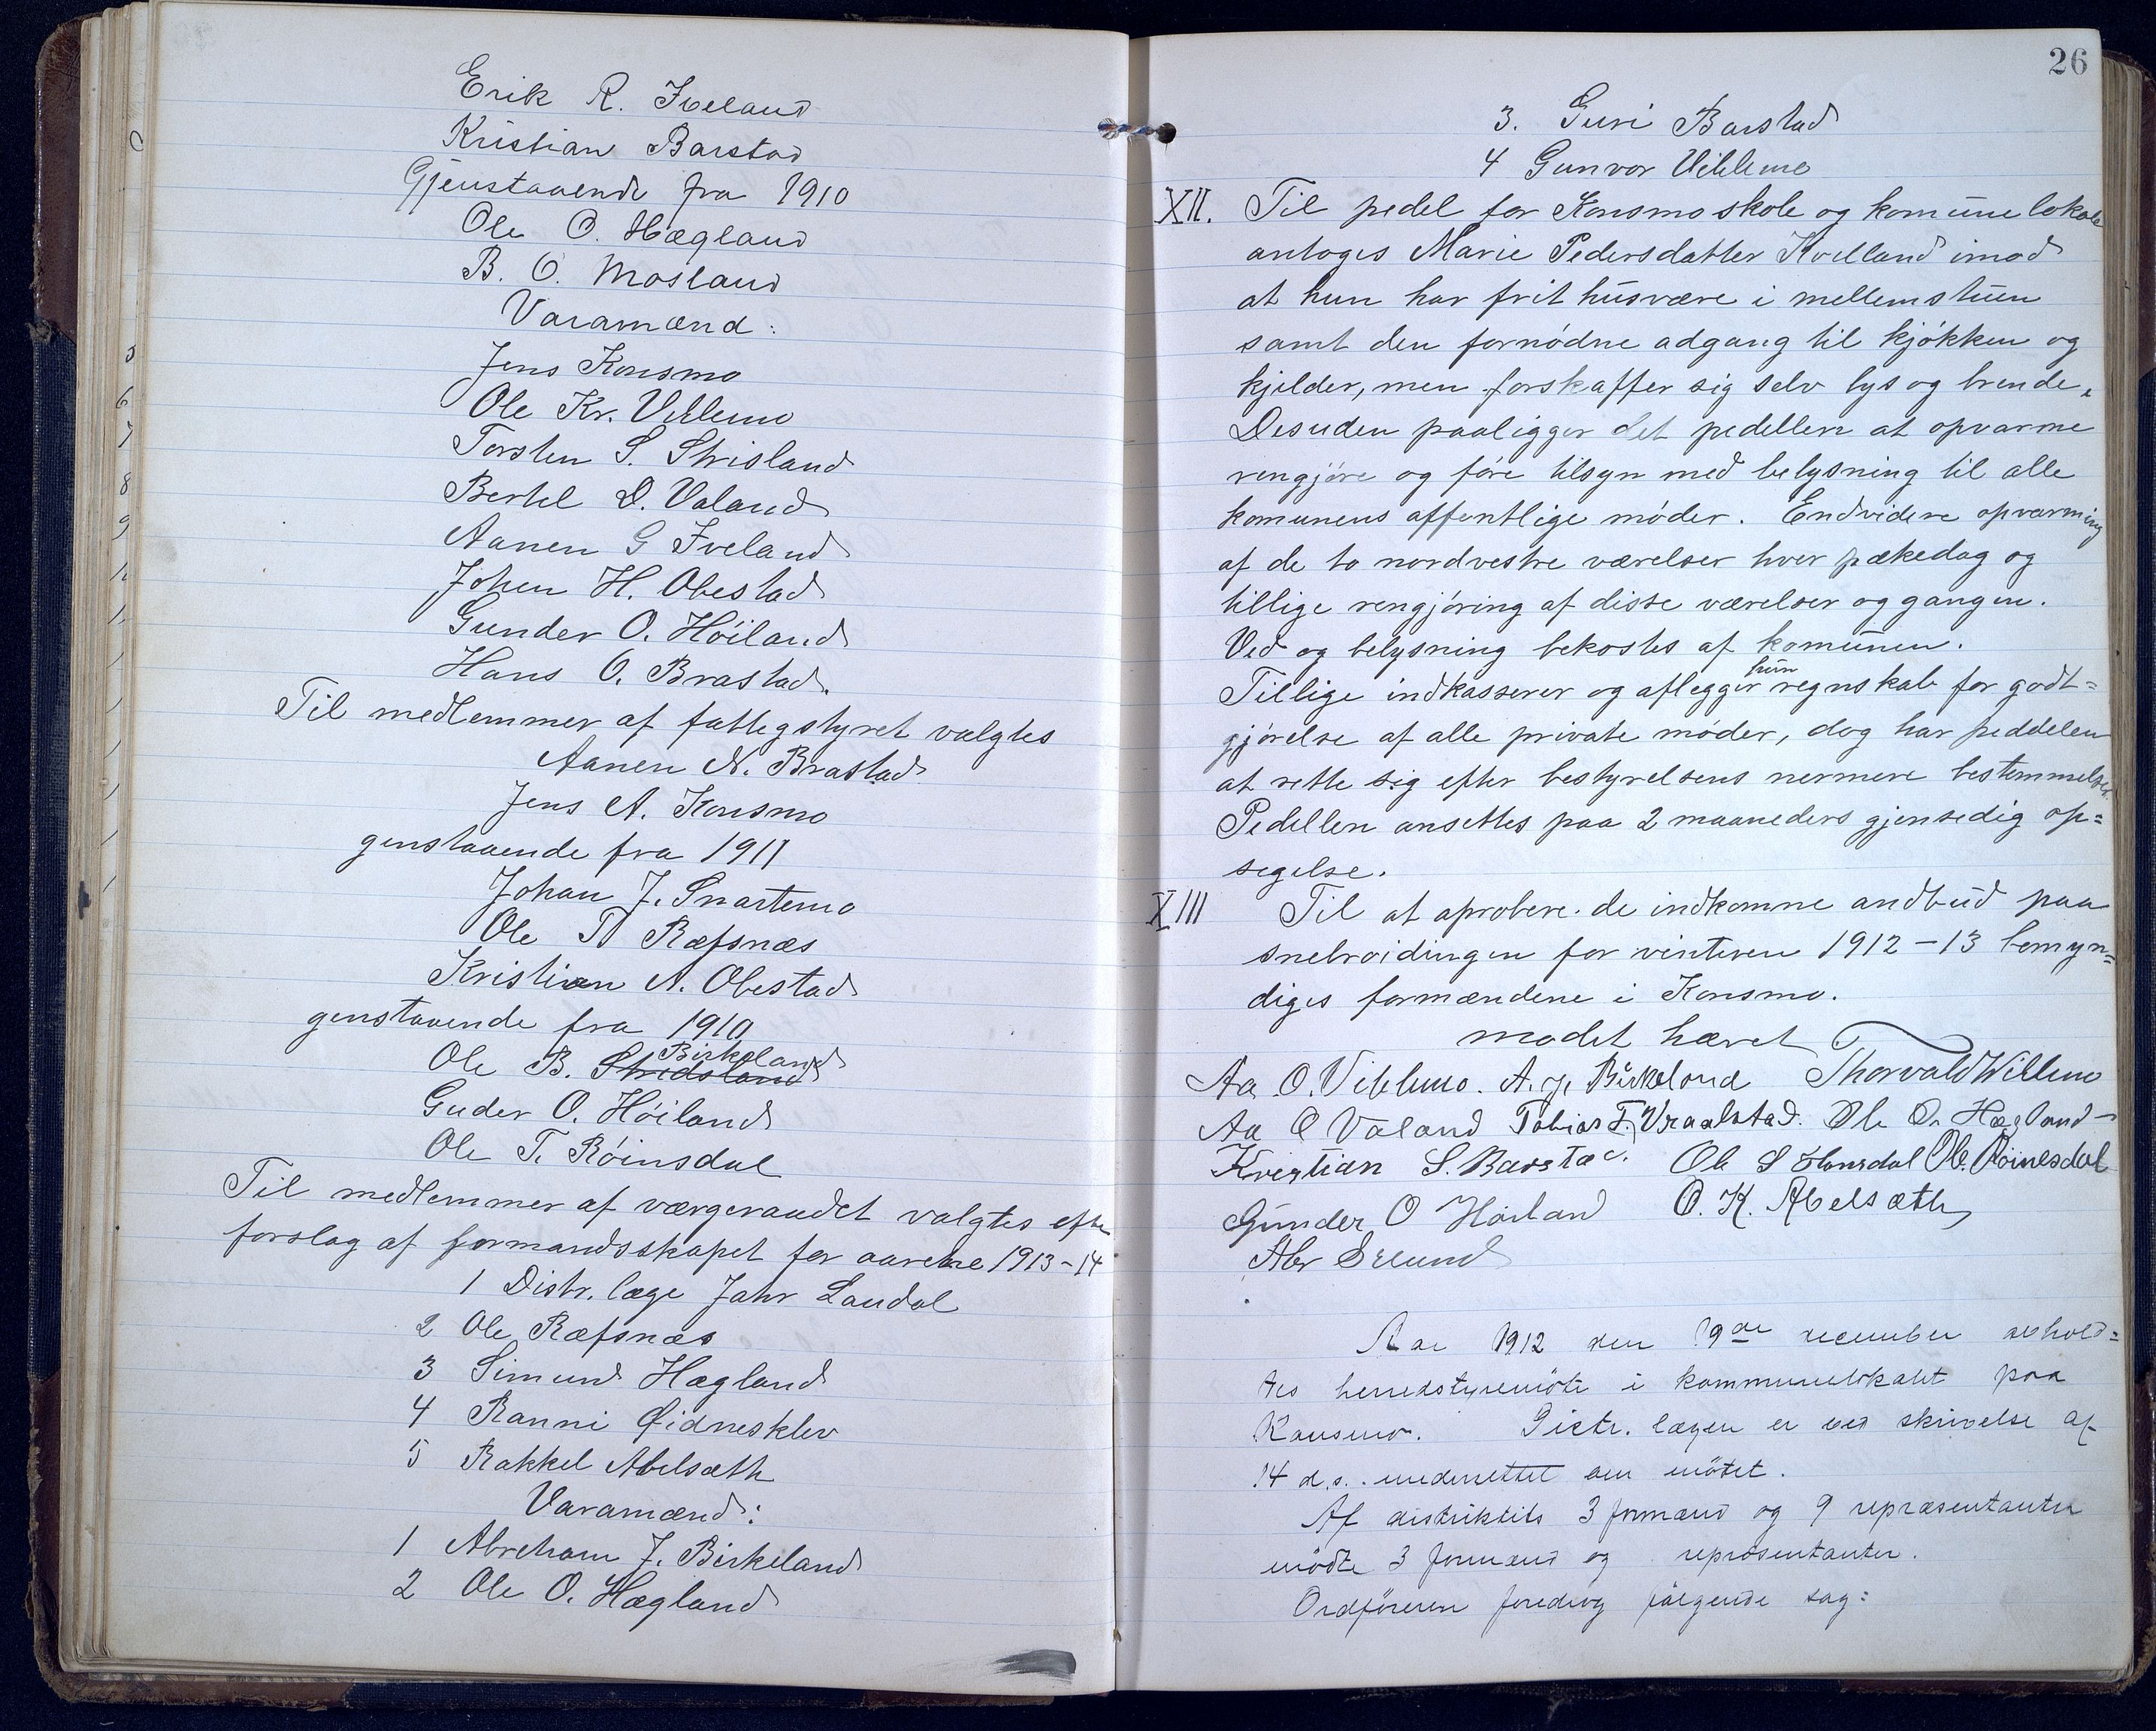 Erik R. Iveland
Kristian Barstad
Gjenstaaende fra 1910
Ole O. Hægland
B. O. Mosland
Varamænd:
Jens Konsmo
Ole Kr. Villemo
Torsten S. Strisland
Bertel D. Valand
Aanen G Iveland
Johen H. Obestad
Gunder O. Höiland
Hans O. Brastad.
Til medlemmer af fattegstyret valgtes
Aanen N. Brastad
Jens A. Konsmo
genstaaende fra 1911
Johan J. Snartemo
Ole T Ræfsnæs
Kristian A. Obestad
genstaaende fra 1910
Birkeland
Ole B. Stridsland
Guder O. Höiland
Ole T. Röinsdal
Til medlemmer af værgeraadet valgtes efter
forslag af formandsskapet for aarene 1913-14
1 Distr. læge Jahr Laudal
2 Ole Ræfsnæs
3 Simund Hægland
4 Ranni Øidnesklev
5 Rakkel Abelsæth
Varamænd:
1 Abreham J. Birkeland
2 Ole O. Hægland
5
6
7
8
9
26
3. Guri Barstad
4 Gunvor Villemo
XII. Til pedel for Konsmo skole og komune lokale
antoges Marie Pedersdatter Kvelland imod
at hun har frit husvære i mellemstuen
samt den fornödne adgang til kjökken og
kjelder, men forskaffer sig selv lys og brende.
Desuden paaligger det pedellen at opvarme
rengjöre og före tilsyn med belysning til alle
komunens offentlige möder. Endvidere opvarming
af de to nordvestre værelser hver pækedag og
tillige rengjöring af disse værelser og gangen.
Ved og belysning bekostes af komunen.
hun
Tillige indkasserer og aflegger regnskab for godt=
gjörelse af alle private möder, dog har peddelen
at rette sig efter bestyrelsens nermere bestemmelser.
Pedellen ansettes paa 2 maaneders gjensedig op=
segelse.
XIII Til at aprobere de indkomne andbud paa
snebroidingen for vinteren 1912-13 bemyn=
diges formændene i Konsmo.
mødet hævet
Aa O. Villemo. A. J. Birkeland Thorvald Willemo
Aa O Valand Tobias T. Vraalstad. Ole O. Hægland
Kristian S. Barstad. Ole S Homsdal Ole Röinesdal
Gunder O Höiland O. K. Abelsæth
Abr Eelund
Aar 1912 den 19de december avhold=
tes herredstyremöte i kommunelokalet paa
Konsmo. Distr. lægen er ved skrivelse af
14 d.s. underrettet om mötet.
Af distriktets 3 formænd og 9 repræsentanter
mödte 3 formænd og repræsentanter.
Ordföreren foredrog fölgende sag: